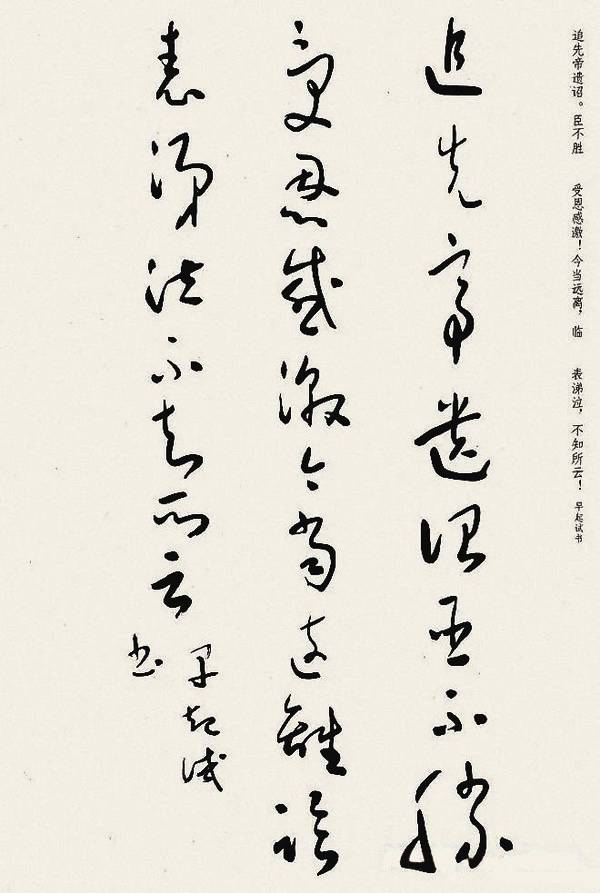 追先帝遗诏。臣不胜 受恩感激！今当远离，临 表涕泣，不知所云！ 早起试书
追先帝遺詔臣不勝
受恩感激今當遠離臨
表涕泣不知所云
早起試
書